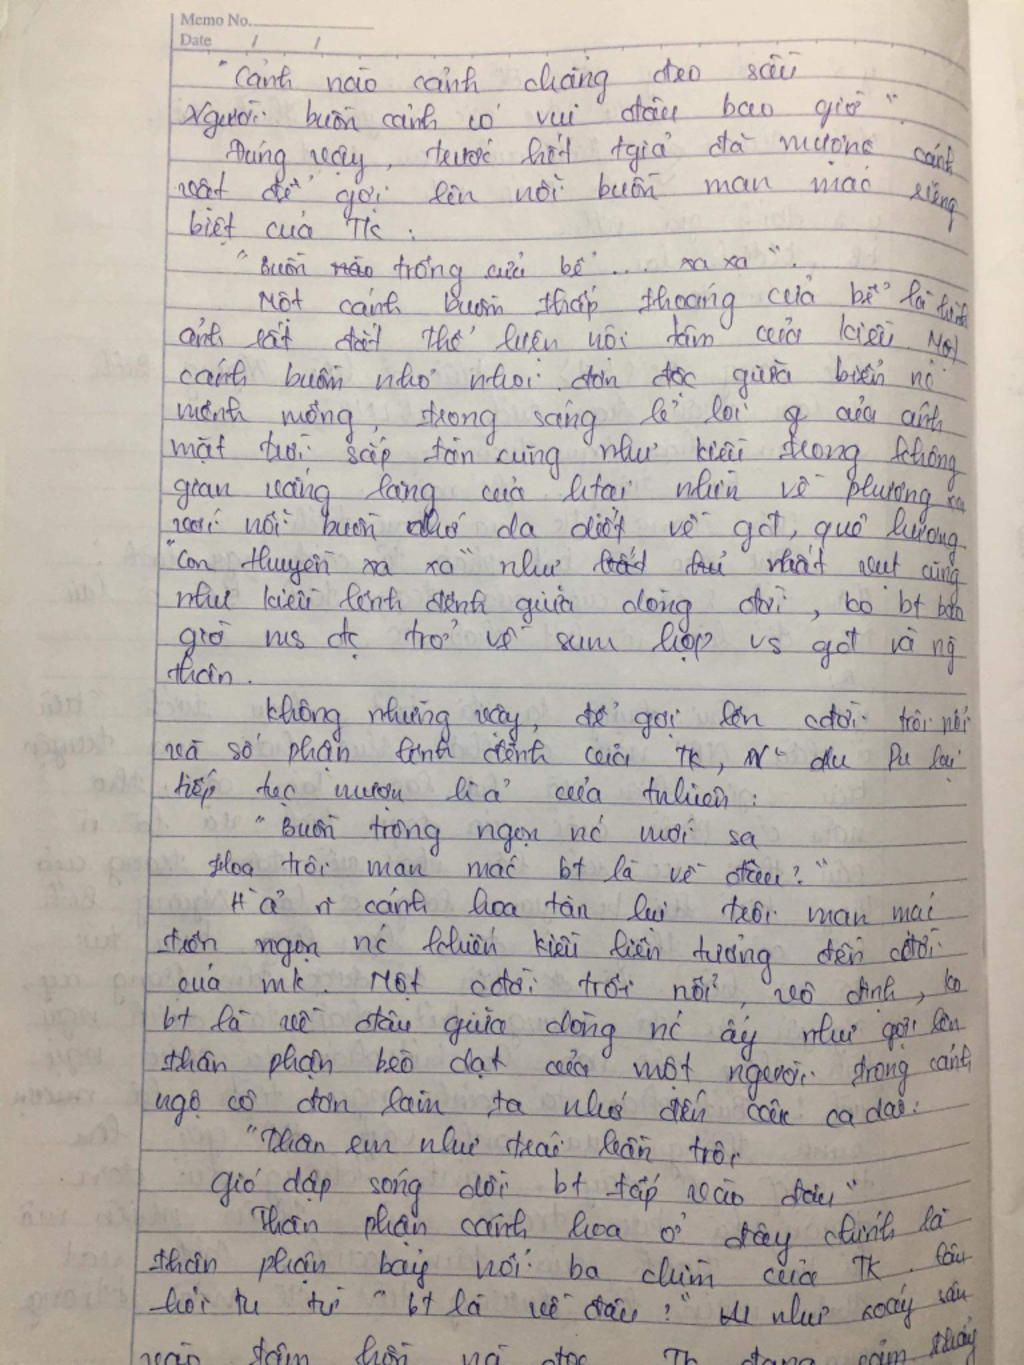 Memo No.
Date / /
"Cảnh nào cảnh chẳng đeo sầu
Người buồn cảnh có vui đâu bao giờ".
Đúng vậy, trước hết tgiả đã mượng cảnh
vật để gợi lên nỗi buồn man mác riêng
biệt của TK:
"Buồn trông cửa bể ... xa xa".
Một cánh buồm thấp thoáng cửa bể là hình
ảnh rất đắt thể hiện nội tâm của kiều. Một
cánh buồm nhỏ nhoi đơn độc giữa biển nc
mênh mông, trong sáng lẻ loi của ánh
mặt trời sắp tàn cũng như kiều trong không
gian vắng lặng của htại nhìn về phương xa
với nỗi buồn nhớ da diết về gđ, quê hương
"Con thuyền xa xa" như vút cũng
như kiều lênh đênh giữa dòng đời, ko bt bao
giờ ms đc trở về sum họp vs gđ và ng
thân.
Không những vậy, để gợi lên cđời trôi nổi
và số phận lênh đênh của TK, N~ du lại
tiếp tục mượn h/ả của tnhiên:
"Buồn trông ngọn nc mới sa
Hoa trôi man mác bt là về đâu?"
H/ả n~ cánh hoa tàn lụi trôi man mác
trên ngọn nc khiến kiều liên tưởng đến cđời
của mk. Một cđời trôi nổi, vô định, ko
bt là về đâu giữa dòng nc ấy như gợi lên
thân phận bèo dạt của một người trong cảnh
ngộ cô đơn làm ta nhớ đến câu ca dao:
"Thân em như trái bần trôi
gió dập sóng dồi bt tấp vào đâu"
Thân phận cánh hoa ở đây chính là
thân phận bảy nổi ba chìm của TK. Câu
hỏi tu từ "bt là về đâu?" như xoáy sâu
vào tâm hồn Th đang cảm thấy